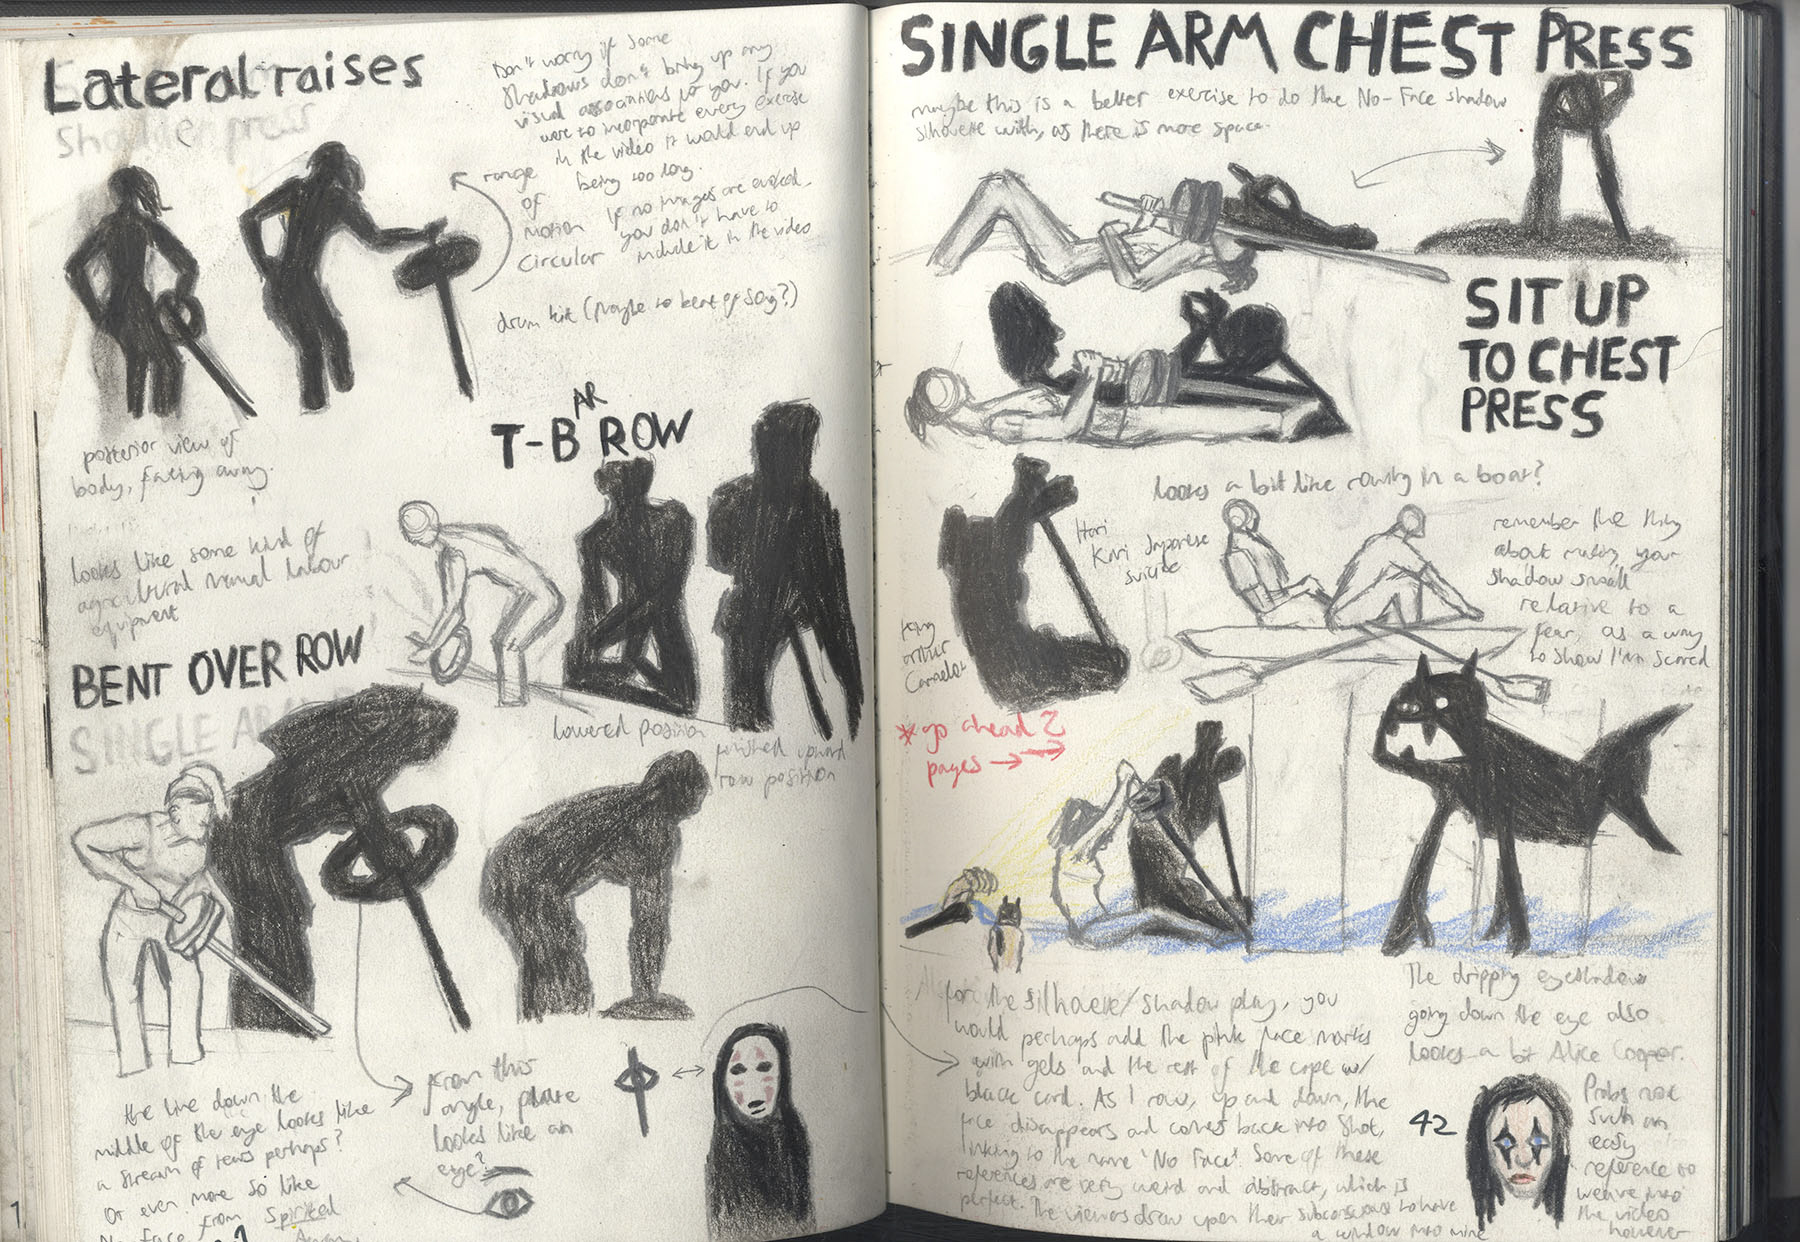 Lateral raises
Shoulder press
Don't worry if some
shadows don't bring up any
visual associations to you. If you
were to incorporate every exercise
in the video it would end up
being too long.
If no images are evoked,
you don't have to
include it in the video
range
of
motion
circular
drum kit (maybe to beat of song?)
posterior view of
body, facing away.
looks like some kind of
agricultural manual labour
equipment
T-BAR ROW
lowered position
finished upward
row position
BENT OVER ROW
SINGLE ARM
the line down the
middle of the eye looks like
a stream of tears perhaps?
Or even more so like
No Face from Spirited
from this
angle, plate
looks like an
eye?
SINGLE ARM CHEST PRESS
maybe this is a better exercise to do the No-Face shadow
silhouette with, as there is more space.
SIT UP
TO CHEST
PRESS
looks a bit like rowing in a boat?
Hari
Kiri Japanese
suicide
king
arthur
Camelot
remember the thing
about making your
shadow small
relative to a
fear, as a way
to show I'm scared
* go ahead 2
pages →→
for the silhouette/shadow play, you
would perhaps add the pink face marks
with gels and the rest of the cape w/
black card. As I row, up and down, the
face disappears and comes back into shot,
linking to the name 'No Face'. Some of these
references are very weird and abstract, which is
perfect. The viewers draw upon their subconscious to have
a window into mine
The dripping eyeshadow
going down the eye also
looks a bit Alice Cooper.
42
Probs not
such an
easy
reference to
weave into
the video
however